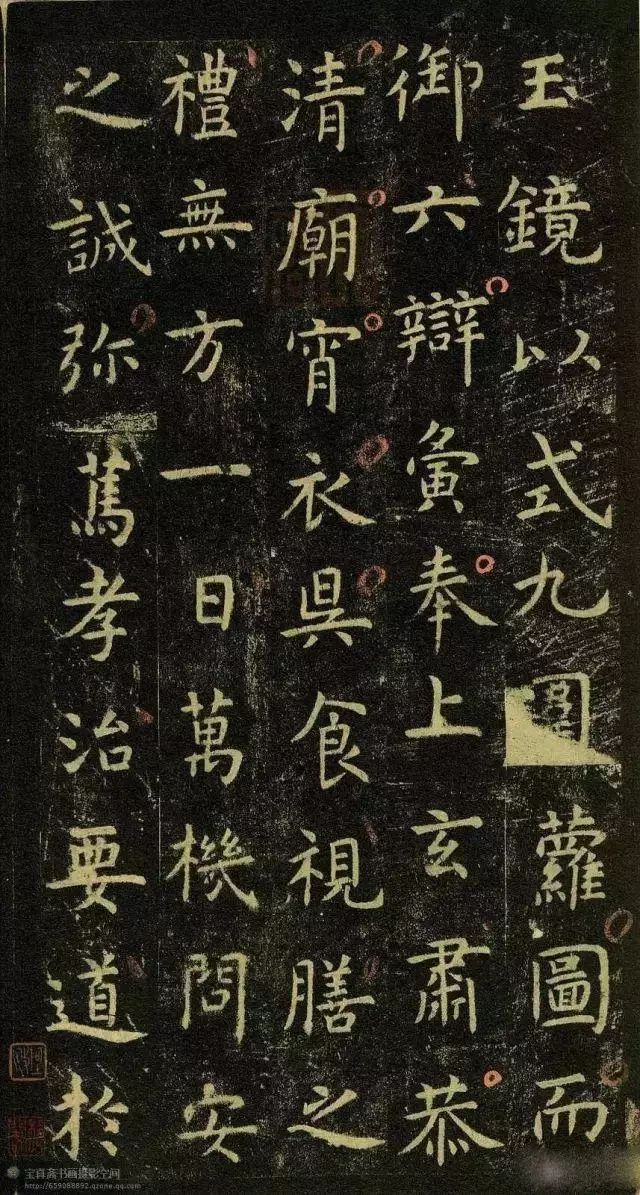 玉鏡以式九圍蘿圖而
御六辯夤奉上玄肅恭
清廟宵衣昗食視膳之
禮無方一日萬機問安
之誠弥篤孝治要道於
宝真斋书画摄影空间
http://659088892.qzone.qq.com